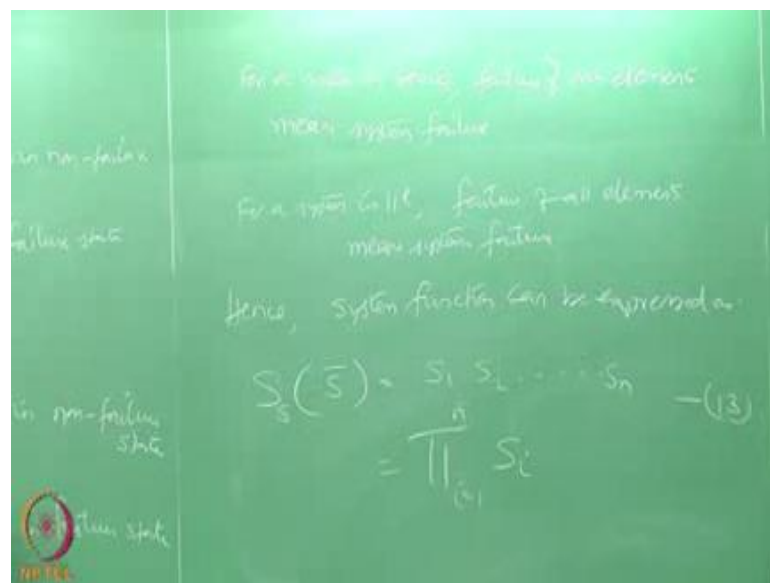 in non-failure
failure state
in non-failure
state
failure state
For a system in series, failure of one element
mean system failure
For a system in ||el, failure of all elements
mean system failure
Hence, system function can be expressed as
S_s(S̄) = S₁ S₂ ..... Sₙ —(13)
= ∏ⁿ_{i=1} Sᵢ
NPTEL